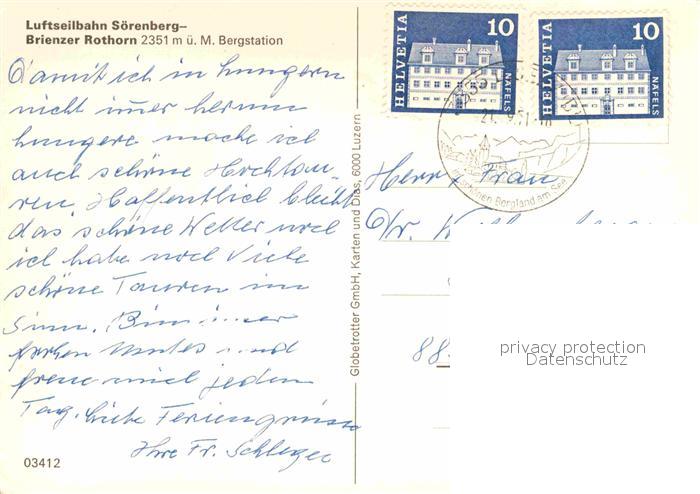 Luftseilbahn Sörenberg–
Brienzer Rothorn 2351 m ü. M. Bergstation
Damit ich in Lungern
nicht immer herum
hungere mache ich
auch schöne Hochtou-
ren. Hoffentlich bleibt
das schöne Wetter noch
ich habe noch viele
schöne Touren im
Sinn. Bin immer
frohen Mutes und
freue mich jeden
Tag. Liebe Feriengrüsse
Ihre Fr.
03412
Globetrotter GmbH, Karten und Dias, 6000 Luzern
HELVETIA 10 NÄFELS
HELVETIA 10 NÄFELS
Bergland am See
Herr u. Frau
88
privacy protection
Datenschutz